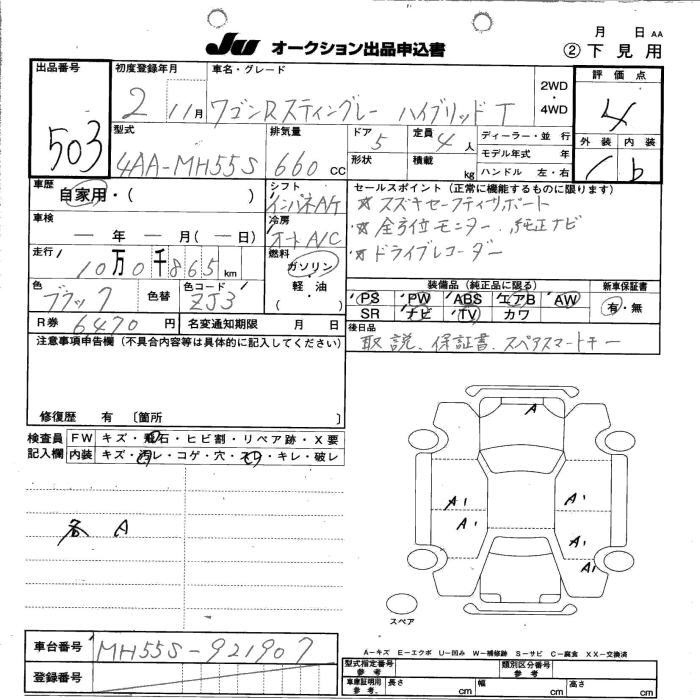 JU オークション出品申込書
月 日 AA
② 下見用
出品番号 503
初度登録年月 2 11月
車名・グレード ワゴンRスティングレー ハイブリッド T
2WD・4WD
評価点 4
外装 内装 b
型式 4AA-MH55S
排気量 660 cc
ドア 5
定員 4人
形状
積載 kg
ディーラー・並行
モデル年式 年
ハンドル 左・右
車歴 自家用・( )
シフト インパネAT
冷房 オートA/C
燃料 ガソリン・軽油 ( )
セールスポイント (正常に機能するものに限ります)
☆ スズキセーフティーサポート
☆ 全方位モニター、純正ナビ
☆ ドライブレコーダー
車検 ― 年 ― 月(― 日)
走行 10万0千865km
色 ブラック
色替
色コード ZJ3
装備品 (純正品に限る)
PS PW ABS エアB AW
SR ナビ TV カワ
新車保証書 有・無
R券 6470円
名変通知期限 月 日
後日品 取説、保証書、スペアスマートキー
注意事項申告欄 (不具合内容等は具体的に記入してください)
修復歴 有 〔箇所 〕
検査員記入欄
FW キズ・飛石・ヒビ割・リペア跡・X要
内装 キズ・汚レ・コゲ・穴・スレ・キレ・破レ
各 A
A
A1 A1
A1 A1
A1
スペア
A-キズ E-エクボ U-凹み W-補修跡 S-サビ C-腐食 XX-交換済
車台番号 MH55S-921907
登録番号
型式指定番号 参考
類別区分番号 参考
車庫証明用 参考 長さ cm 幅 cm 高さ cm